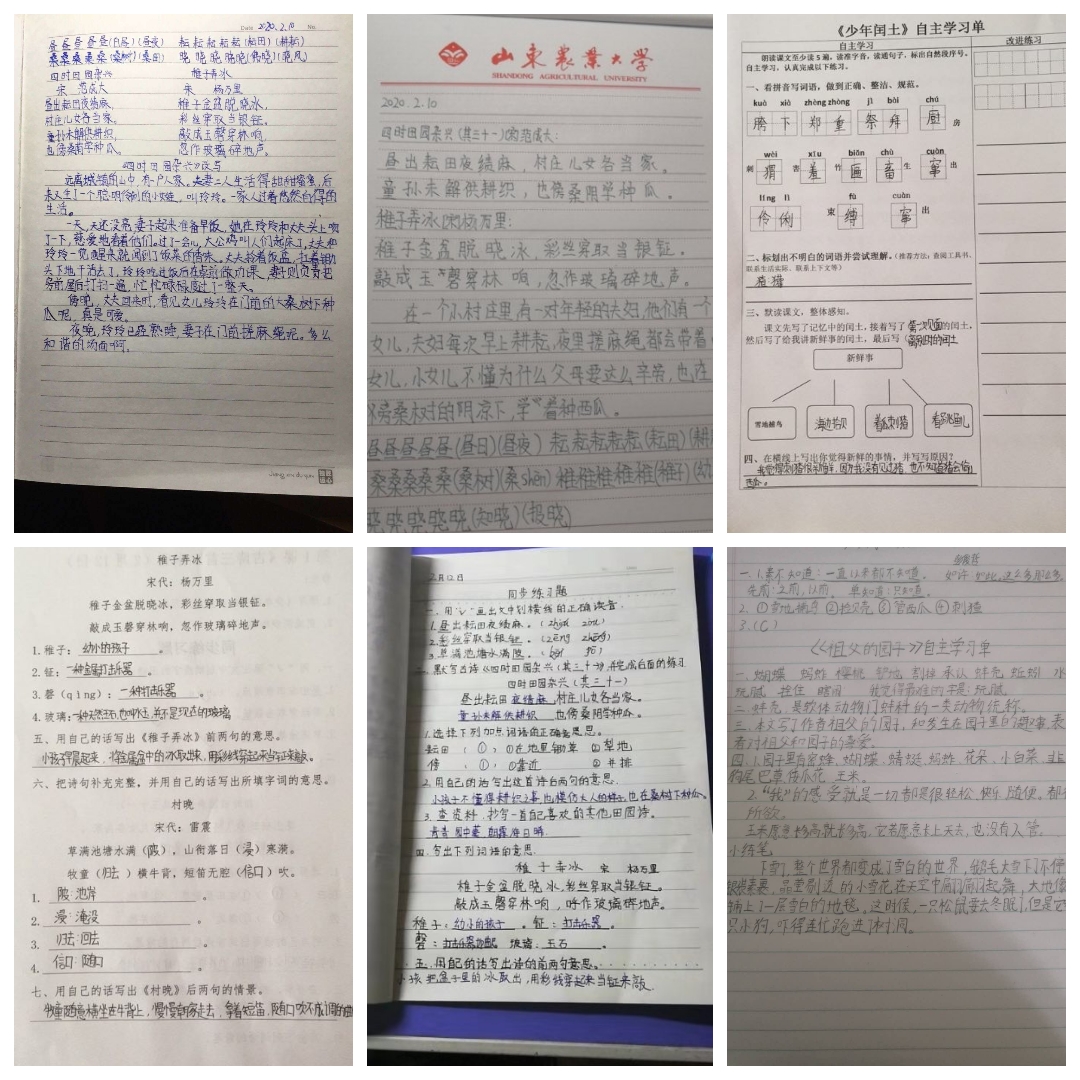 Date 2020.2.10 No
昼昼昼昼昼(白昼)(昼夜) 耘耘耘耘耘(耘田)(耕耘)
桑桑桑桑桑(桑树)(桑田) 晓晓晓晓晓(拂晓)(晓风)
四时田园杂兴 稚子弄冰
宋 范成大 宋 杨万里
昼出耘田夜绩麻, 稚子金盆脱晓冰,
村庄儿女各当家。 彩丝穿取当银钲。
童孙未解供耕织, 敲成玉磬穿林响,
也傍桑阴学种瓜。 忽作玻璃碎地声。
《四时田园杂兴》改写
远离城镇的山中,有一户人家。夫妻二人生活得甜甜蜜蜜,后
来又生了一个聪明伶俐的小女娃,叫玲玲。一家人过着悠然自得的
生活。
一天,天还没亮,妻子起来准备早饭,她在玲玲和丈夫头上吻
了一下,慈爱地看着他们。过了一会儿,大公鸡叫人们起床了,丈夫和
玲玲一觉醒来就闻到了饭菜的香味。丈夫拎着饭盒,扛着锄
头下地干活去了,玲玲吃过饭后在桌前做功课,妻子则负责把
房前屋后打扫一遍,忙忙碌碌度过了一整天。
傍晚,丈夫回来时,看见女儿玲玲在门前的大桑树下种
瓜呢,真是可爱。
夜晚,玲玲已经熟睡,妻子在门前搓麻绳呢。多么
和谐的场面啊。
山东农业大学
SHANDONG AGRICULTURAL UNIVERSITY
2020.2.10
四时田园杂兴(其三十一)(宋)范成大:
昼出耘田夜绩麻,村庄儿女各当家。
童孙未解供耕织,也傍桑阴学种瓜。
稚子弄冰(宋)杨万里:
稚子金盆脱晓冰,彩丝穿取当银钲。
敲成玉磬穿林响,忽作玻璃碎地声。
在一个小村庄里,有一对年轻的夫妇,他们有一个
女儿,夫妇每次早上耕耘,夜里搓麻绳,都会带着
女儿,小女儿不懂为什么父母要这么辛劳,也在
傍桑树的阴凉下,学着种西瓜。
昼昼昼昼昼(昼日)(昼夜) 耘耘耘耘耘(耘田)(耕
桑桑桑桑桑(桑树)(桑shèn) 稚稚稚稚稚(稚子)(幼
晓晓晓晓晓(知晓)(报晓)
《少年闰土》自主学习单
自主学习 改进练习
朗读课文至少读5遍,读准字音,读通句子,标出自然段序号。
自主学习,认真完成以下练习。
一、看拼音写词语,做到正确、整洁、规范。
kuà xià zhèng zhòng jì bài chú
胯 下 郑 重 祭 拜 厨 房
wèi xiū biǎn chù cuàn
刺 猬 害 羞 竹 匾 畜 生 窜 出
líng lì fù cuàn
伶 俐 束 缚 窜 出
二、标划出不明白的词语并尝试理解。(推荐方法:查阅工具书、
联系生活实际、联系上下文等)
三、默读课文,整体感知。
课文先写了记忆中的闰土,接着写了(第一次见面)的闰土,
然后写了给我讲新鲜事的闰土,最后写(离别时的闰土
新鲜事
雪地捕鸟 海边拾贝 看瓜刺猹 看跳鱼儿
四、在横线上写出你觉得新鲜的事情,并写写原因?
西瓜。
稚子弄冰
宋代:杨万里
稚子金盆脱晓冰,彩丝穿取当银钲。
敲成玉磬穿林响,忽作玻璃碎地声。
1.稚子: 幼小的孩子 。
2.钲: 一种金属打击乐器 。
3.磬(qìng): 一种打击乐器 。
4.玻璃:一种天然玉,也叫水玉,并不是现在的玻璃
五、用自己的话写出《稚子弄冰》前两句的意思。
小孩子早晨起来,将金盆中的冰取出来,用彩线穿起来当钲来敲。
六、把诗句补充完整。并用自己的话写出所填字词的意思。
村晚
宋代:雷震
草满池塘水满(陂),山衔落日(浸)寒漪。
牧童(归去)横牛背,短笛无腔(信口)吹。
1. 陂:池岸 。
2. 浸:淹没 。
3. 归去:回去 。
4. 信口:随口 。
七、用自己的话写出《村晚》后两句的情景。
牧童随意横坐在牛背上,慢慢朝家走去,拿着短笛,随口吹不成调的曲
2月12日
同步练习题
一、用“√”画出文中划横线的正确读音.
1.昼出耘田夜绩麻。(zhòu zòu)
2.彩丝穿取当银钲。(zēng zhēng)
3.草满池塘水满陂。
二、默写古诗《四时田园杂兴(其三十一)》,并完成后面的练习
四时田园杂兴(其三十一)
昼出耘田夜绩麻,村庄儿女各当家。
童孙未解供耕织 也傍桑阴学种瓜。
1.选择下列加点词语的正确意思。
耘田:(①)①在地里锄草 ②犁地
傍:(①)①靠近 ②并排
2.用自己的话写出这首诗后两句的意思.
小孩子不懂得耕织之事,也模仿大人的样子,也在桑树下种瓜。
3.查资料,抄写一首自己喜欢的其他田园诗。
青青园中葵 朝露待日晞.
四、写出下列词语的意思.
稚子弄冰 宋 杨万里
稚子金盆脱晓冰,彩丝穿取当银钲。
敲成玉磬穿林响,呼作玻璃碎地声。
稚子:幼小的孩子。钲:打击乐器。
玻璃:玉石。
五、用自己的话写出诗的前两句意思。
小孩把盆子里的冰取出,用彩线穿起来当钲来敲
一、1.素不知道:一直以来都不知道。
先前:之前,以前。 单知道:只知道。
2. ①雪地捕鸟 ②捡贝壳 ③管西瓜 ④刺猹
3.(C)
《祖父的园子》自主学习单
二、蚌壳:是软体动物门蚌科的一类动物统称。
三、本文写了作者祖父的园子,和发生在园子里的趣事,表
着对祖父和园子的喜爱。
四、1.园子里有蜜蜂、蝴蝶、蜻蜓、蚂蚱、花朵、小白菜、韭
2.“我”的感受就是一切都是很轻松、快乐、随便。都
所欲。
玉米愿意长多高就长多高,它若愿意长上天去,也没有人管。
小练笔
下雪了,整个世界都变成了雪白的世界,鹅毛大雪下个不停
银装素裹,晶莹剔透的小雪花在天空中翩翩起舞,大地像
铺上了一层雪白的地毯。这时候,一只松鼠要去冬眠了,但是它
只小狗,吓得连忙跑进了树洞。